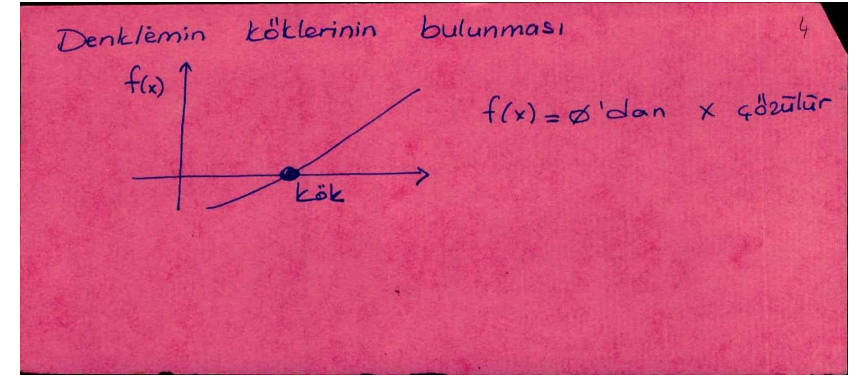 Denklemin köklerinin bulunması 4
f(x)
f(x) = ø'dan x çözülür
kök